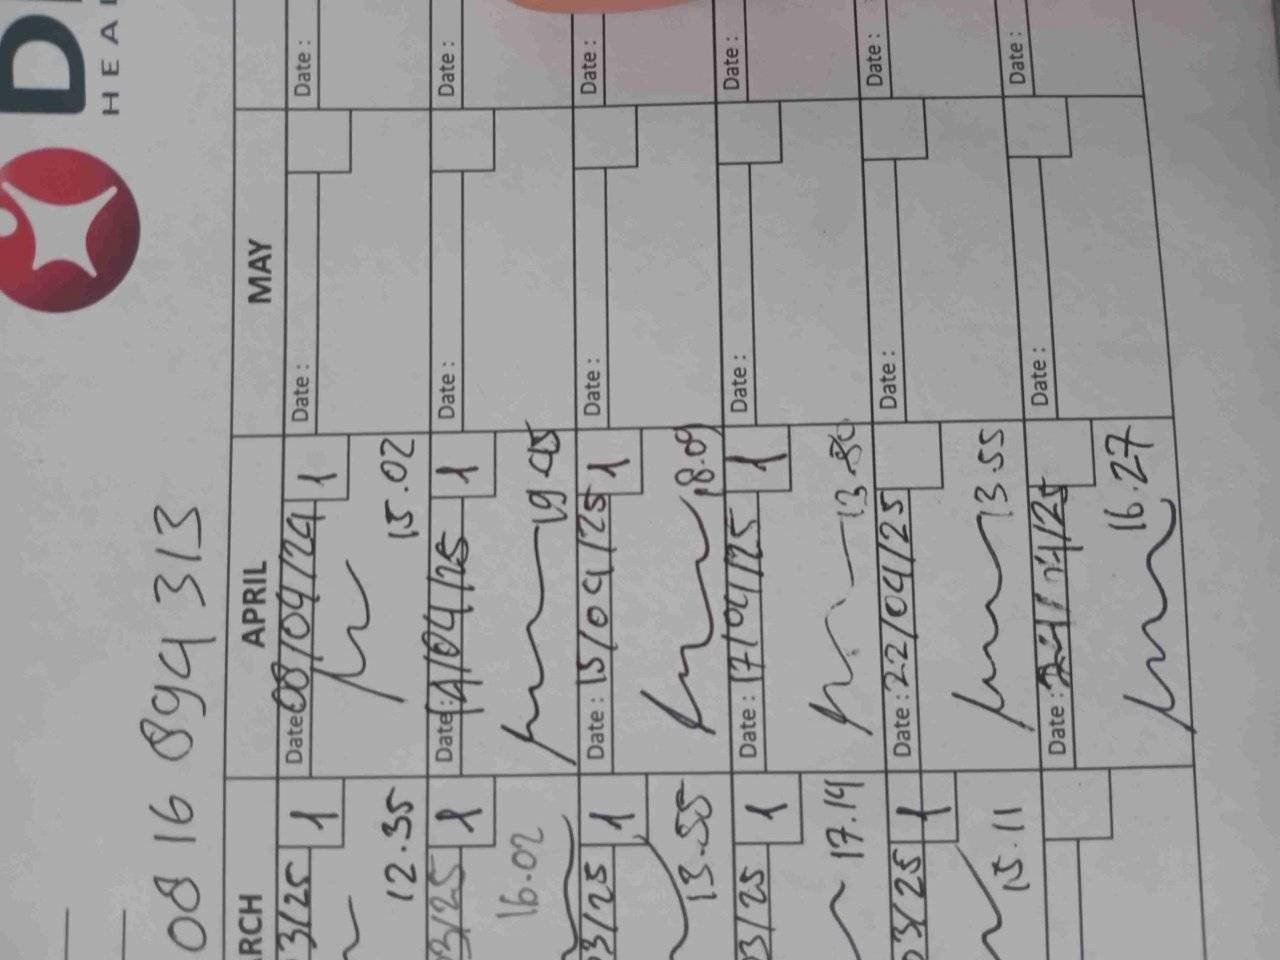 HEA
08 16 894 313
ARCH APRIL MAY
3/25 1 12.35
Date: 08/04/24 1 15.02
Date:
Date:
03/25 1 16.02
Date: /04/25 1 19.45
Date:
Date:
03/25 1 13.55
Date: 15/04/25 1 18.09
Date:
Date:
03/25 1 17.14
Date: 17/04/25 1
Date:
Date:
03/25 1 15.11
Date: 22/04/25 13.55
Date:
Date:
Date: 16.27
Date:
Date: